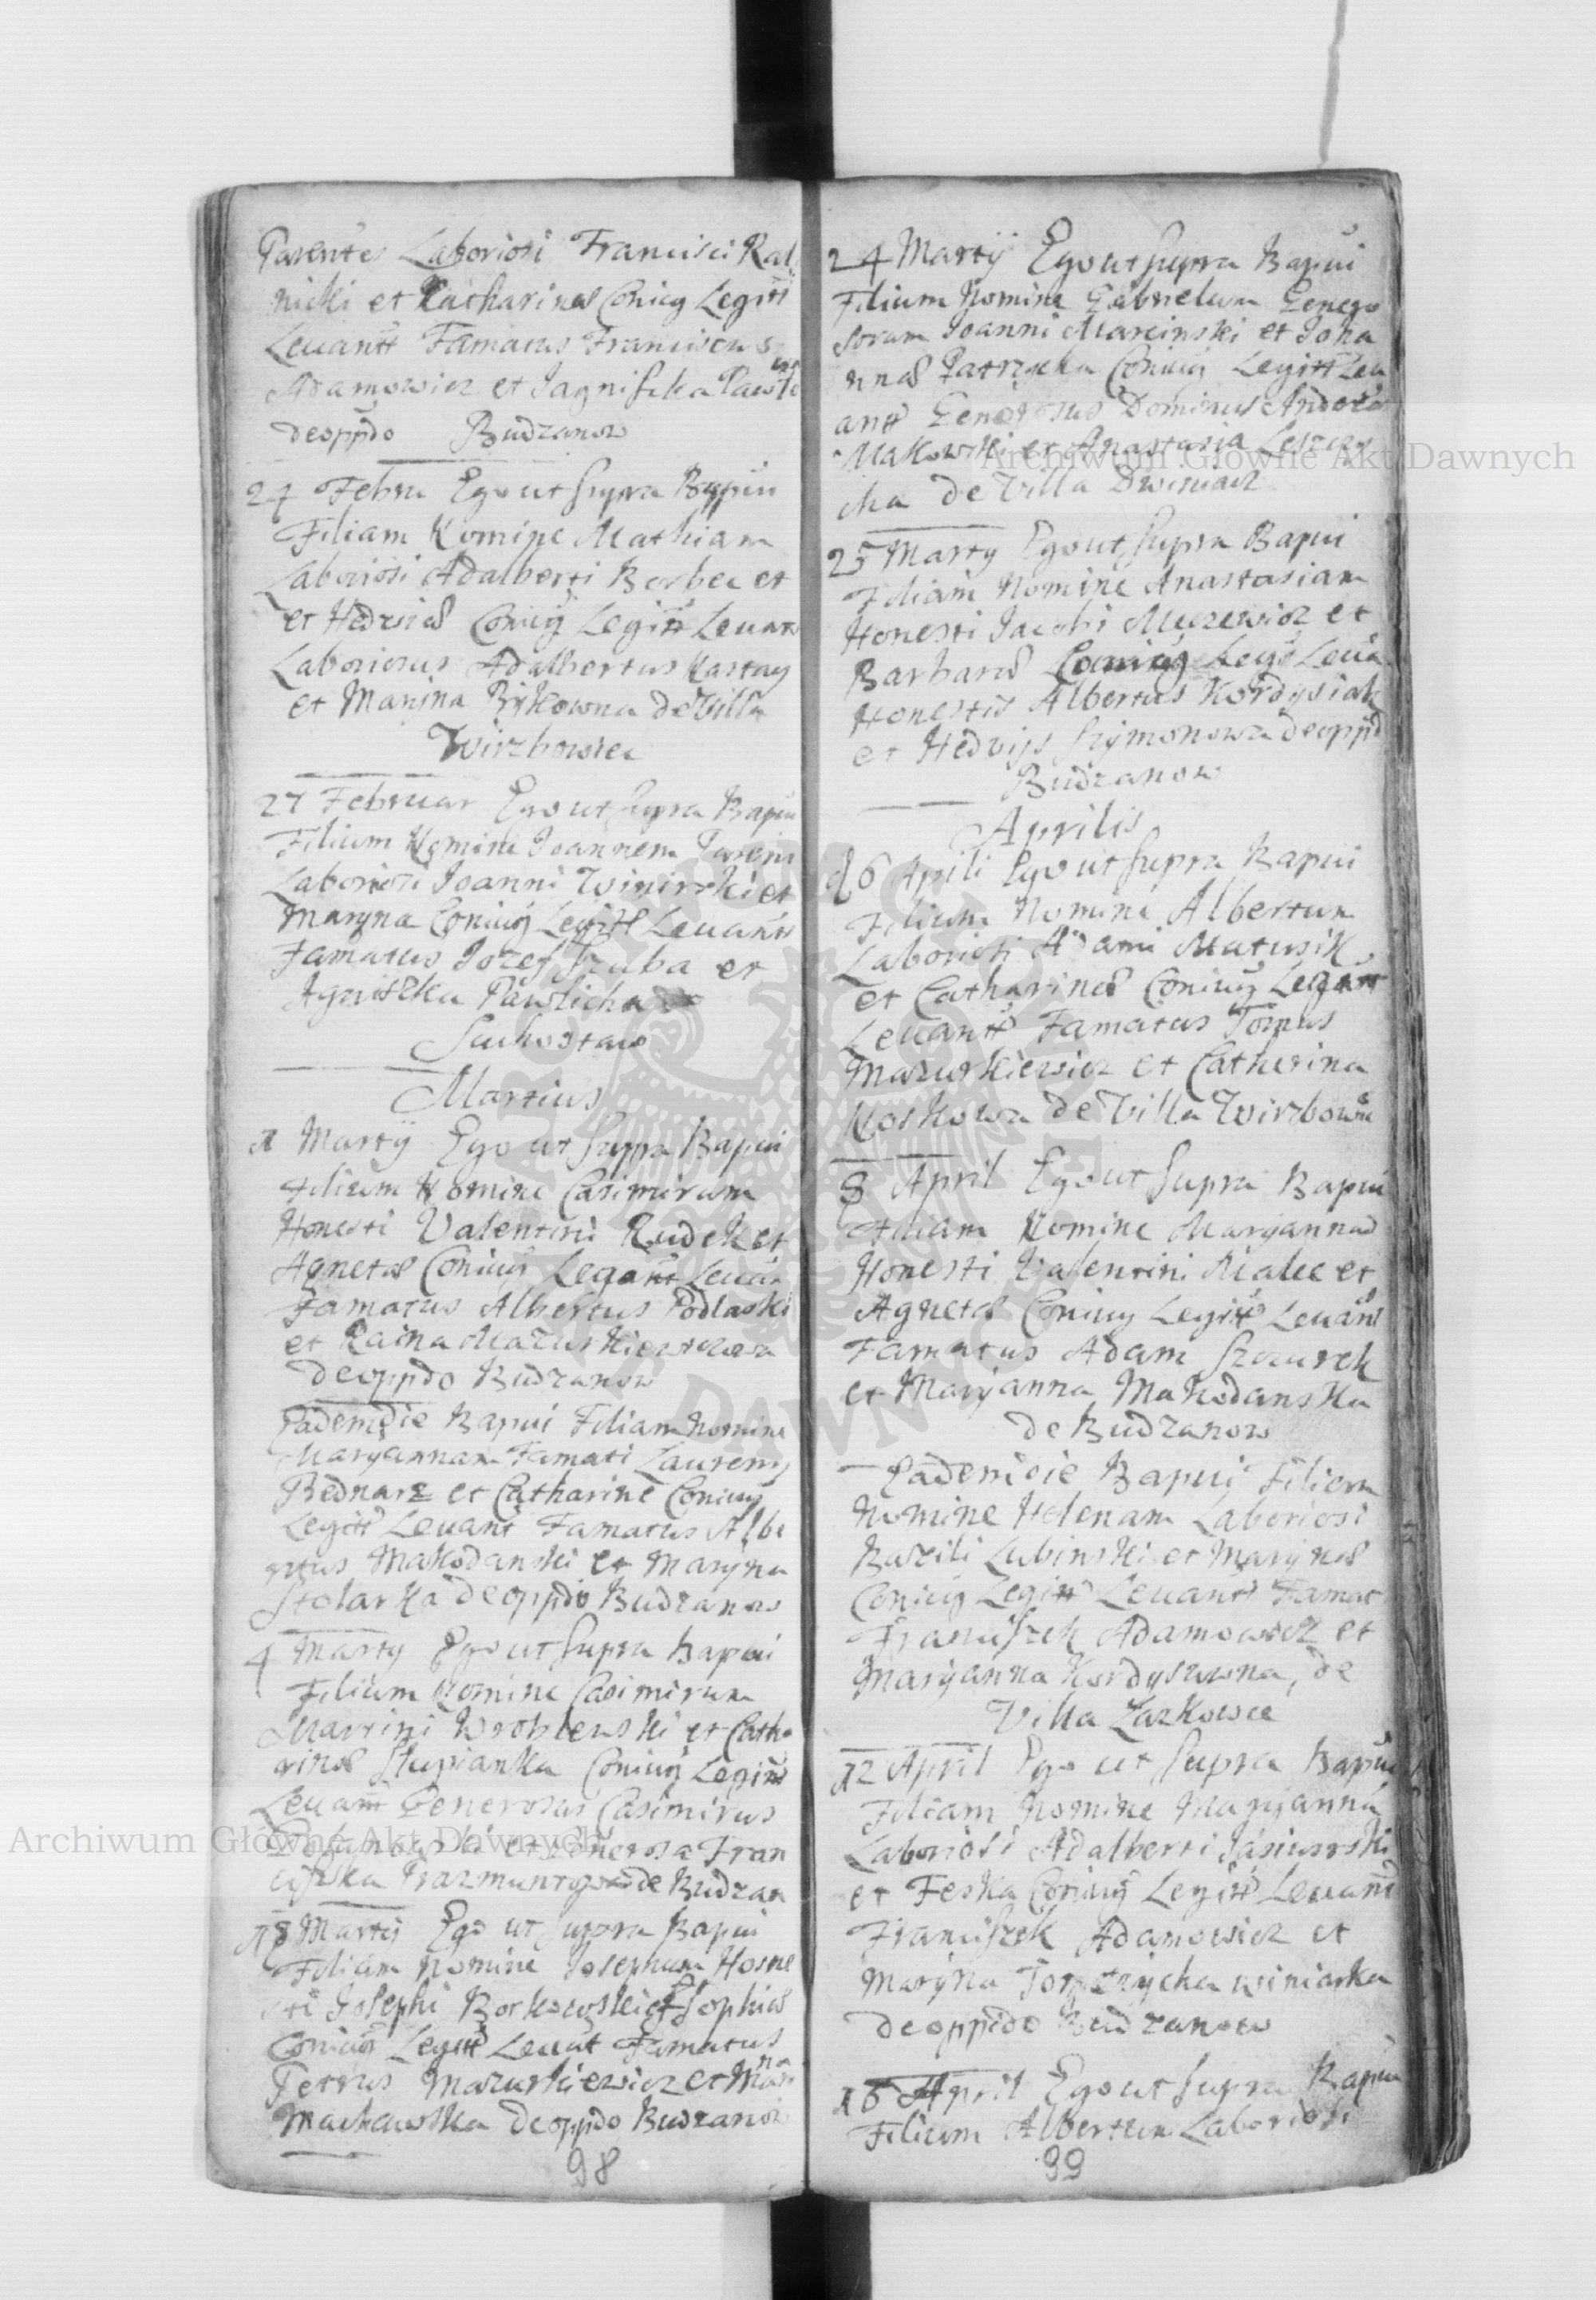 Parentes Laboriosi Francisci Ral
nicki et Katharinæ Coniug Legitt
Levantt Famatus Franciscus
Adamowicz et Jagniszka Pawło
deoppdo Budzanow
24 Febru Ego ut supra Bapui
Filiam Nomine Mathiam
Laboriosi Adalberti Berbec et
et Hedvigæ Coniug Legitt Levant
Laboriosus Adalbertus
et Maryna Bykowna de Villa
Wirzbowiec
27 Februar Ego ut supra Bapui
Filium Nomine Joannem
Laboriosi Joanni Winirski et
Maryna Coniug Legitt Levantt
Famatus Jozef Szuba et
Agniszka Pawlicha de
Suhostaw
Martius
1 Martij Ego ut supra Bapui
Filium Nomine Casimirum
Honesti Valentini Rudek et
Agnetæ Coniug Legantt Levan
Famatus Albertus Podlaski
et Raina Mazurkiewiczowa
deoppdo Budzanow
Eademdie Bapui Filiam Nomine
Maryannam Famati Laurenty
Bednarz et Catharine Coniug
Legitt Levant Famatus Albe
rtus Makodanski et Maryna
Stolarka deoppdo Budzanow
4 Marty Ego ut supra bapui
Filium Nomine Casimirum
Martini Wroblewski et Catha
rinæ Slupianka Coniug Legitt
Levantt Generosus Casimirus
et Generosa Fran
ciszka de Budzan
18 Martij Ego ut supra Bapui
Filiam Nomine Josephum Hosne
sti Josephi Borkowski et Sophiæ
Coniug Legitt Levat Famatus
Petrus Mazurkiewicz et Mari
na
deoppdo Budzanow
98
24 Martij Ego ut supra Bapui
Filium Nomine Gabrielum Genero
sorum Joanni Marcinski et Joha
nnæ Patrzycka Coniug Legitt Lev
antt Generosus Dominus Andrea
Makowski et Anastasia Leszczy
cka de Villa Dwiniacz
25 Marty Ego ut supra Bapui
Filiam Nomine Anastasiam
Honesti Jacobi Muczewicz et
Barbaræ Coniug Legit Leva
Honestis Albertus Kordysiak
et Hedvigs Szymonowa deoppid
Budzanow
Aprilis
d 6 Aprili Ego ut supra Bapui
Filium Nomine Albertum
Laboriosi Adami Matusik
et Catharinæ Coniug Legantt
Levantt Famatus Tomas
Mazurkiewicz et Catherina
Noskowa de Villa Wirzbowie
8 April Ego ut supra Bapui
Filiam Nomine Maryannæ
Honesti Valentini Malec et
Agnetæ Coniug Legitt Levant
Famatus Adam Szczurek
et Maryanna Makodanska
de Budzanow
Eademdie Bapui Filiem
Nomine Helenam Laboriosi
Bazili Lubinski et Marynæ
Coniug Legitt Levantt Famat
Franciszek Adamowicz et
Maryanna Kordysuwna, de
Villa Laskowce
12 April Ego ut supra Bapui
Filiam Nomine Maryanna
Laboriosi Adalberti Jasiurski
et Feska Coniug Legitt Levant
Franciszek Adamowicz et
Maryna winiarka
deoppido Budzanow
16 April Ego ut supra Bapui
Filium Albertum Laboriosi
99
Archiwum Główne Akt Dawnych
Archiwum Główne Akt Dawnych